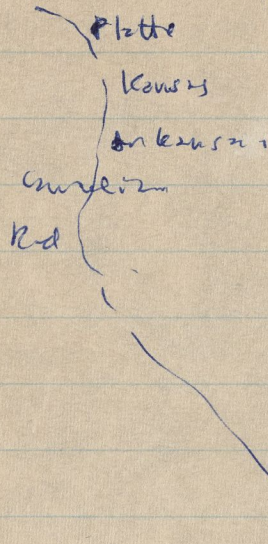 Platte
Kansas
Arkansas
Canadian
Red